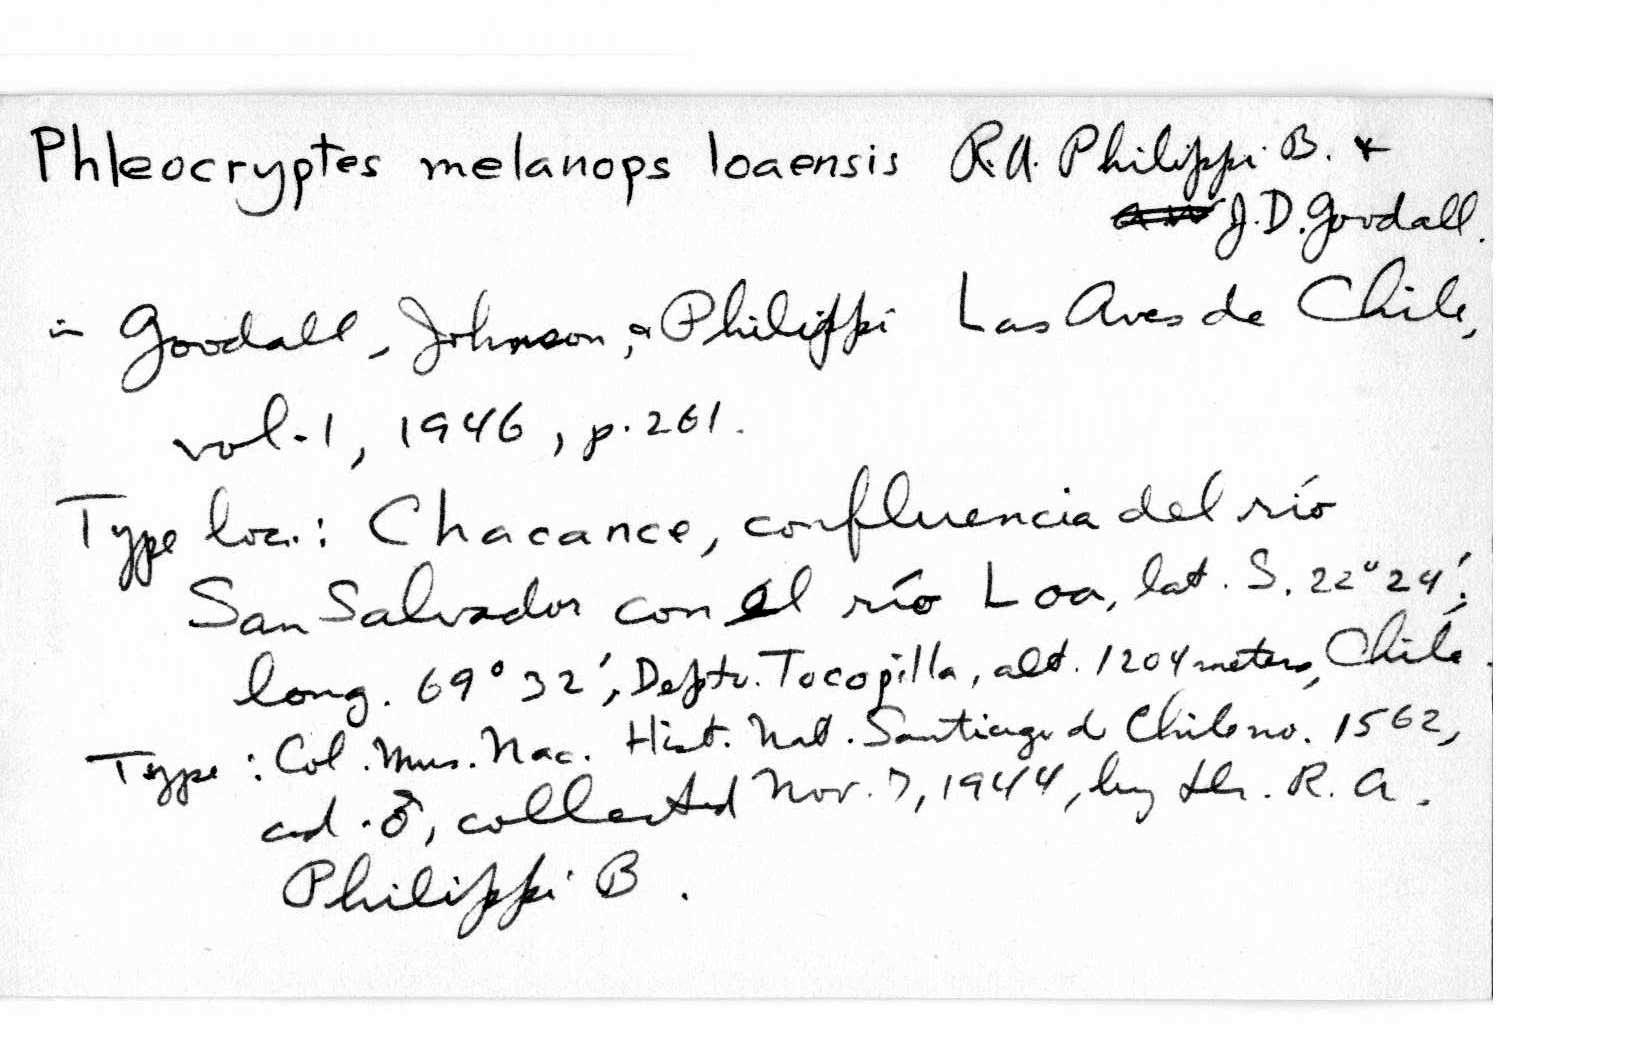 Phleocryptes melanops loaensis R.A. Philippi B. &
J.D. Goodall.
in Goodall, Johnson, & Philippi Las Aves de Chile,
vol. 1, 1946, p. 261.
Type loc.: Chacance, confluencia del río
San Salvador con el río Loa, lat. S. 22° 24',
long. 69° 32', Depto. Tocopilla, alt. 1204 meters, Chile.
Type: Col. Mus. Nac. Hist. Nat. Santiago d Chile no. 1562,
ad. ♂, collected Nov. 7, 1944, by Dr. R. A.
Philippi B.